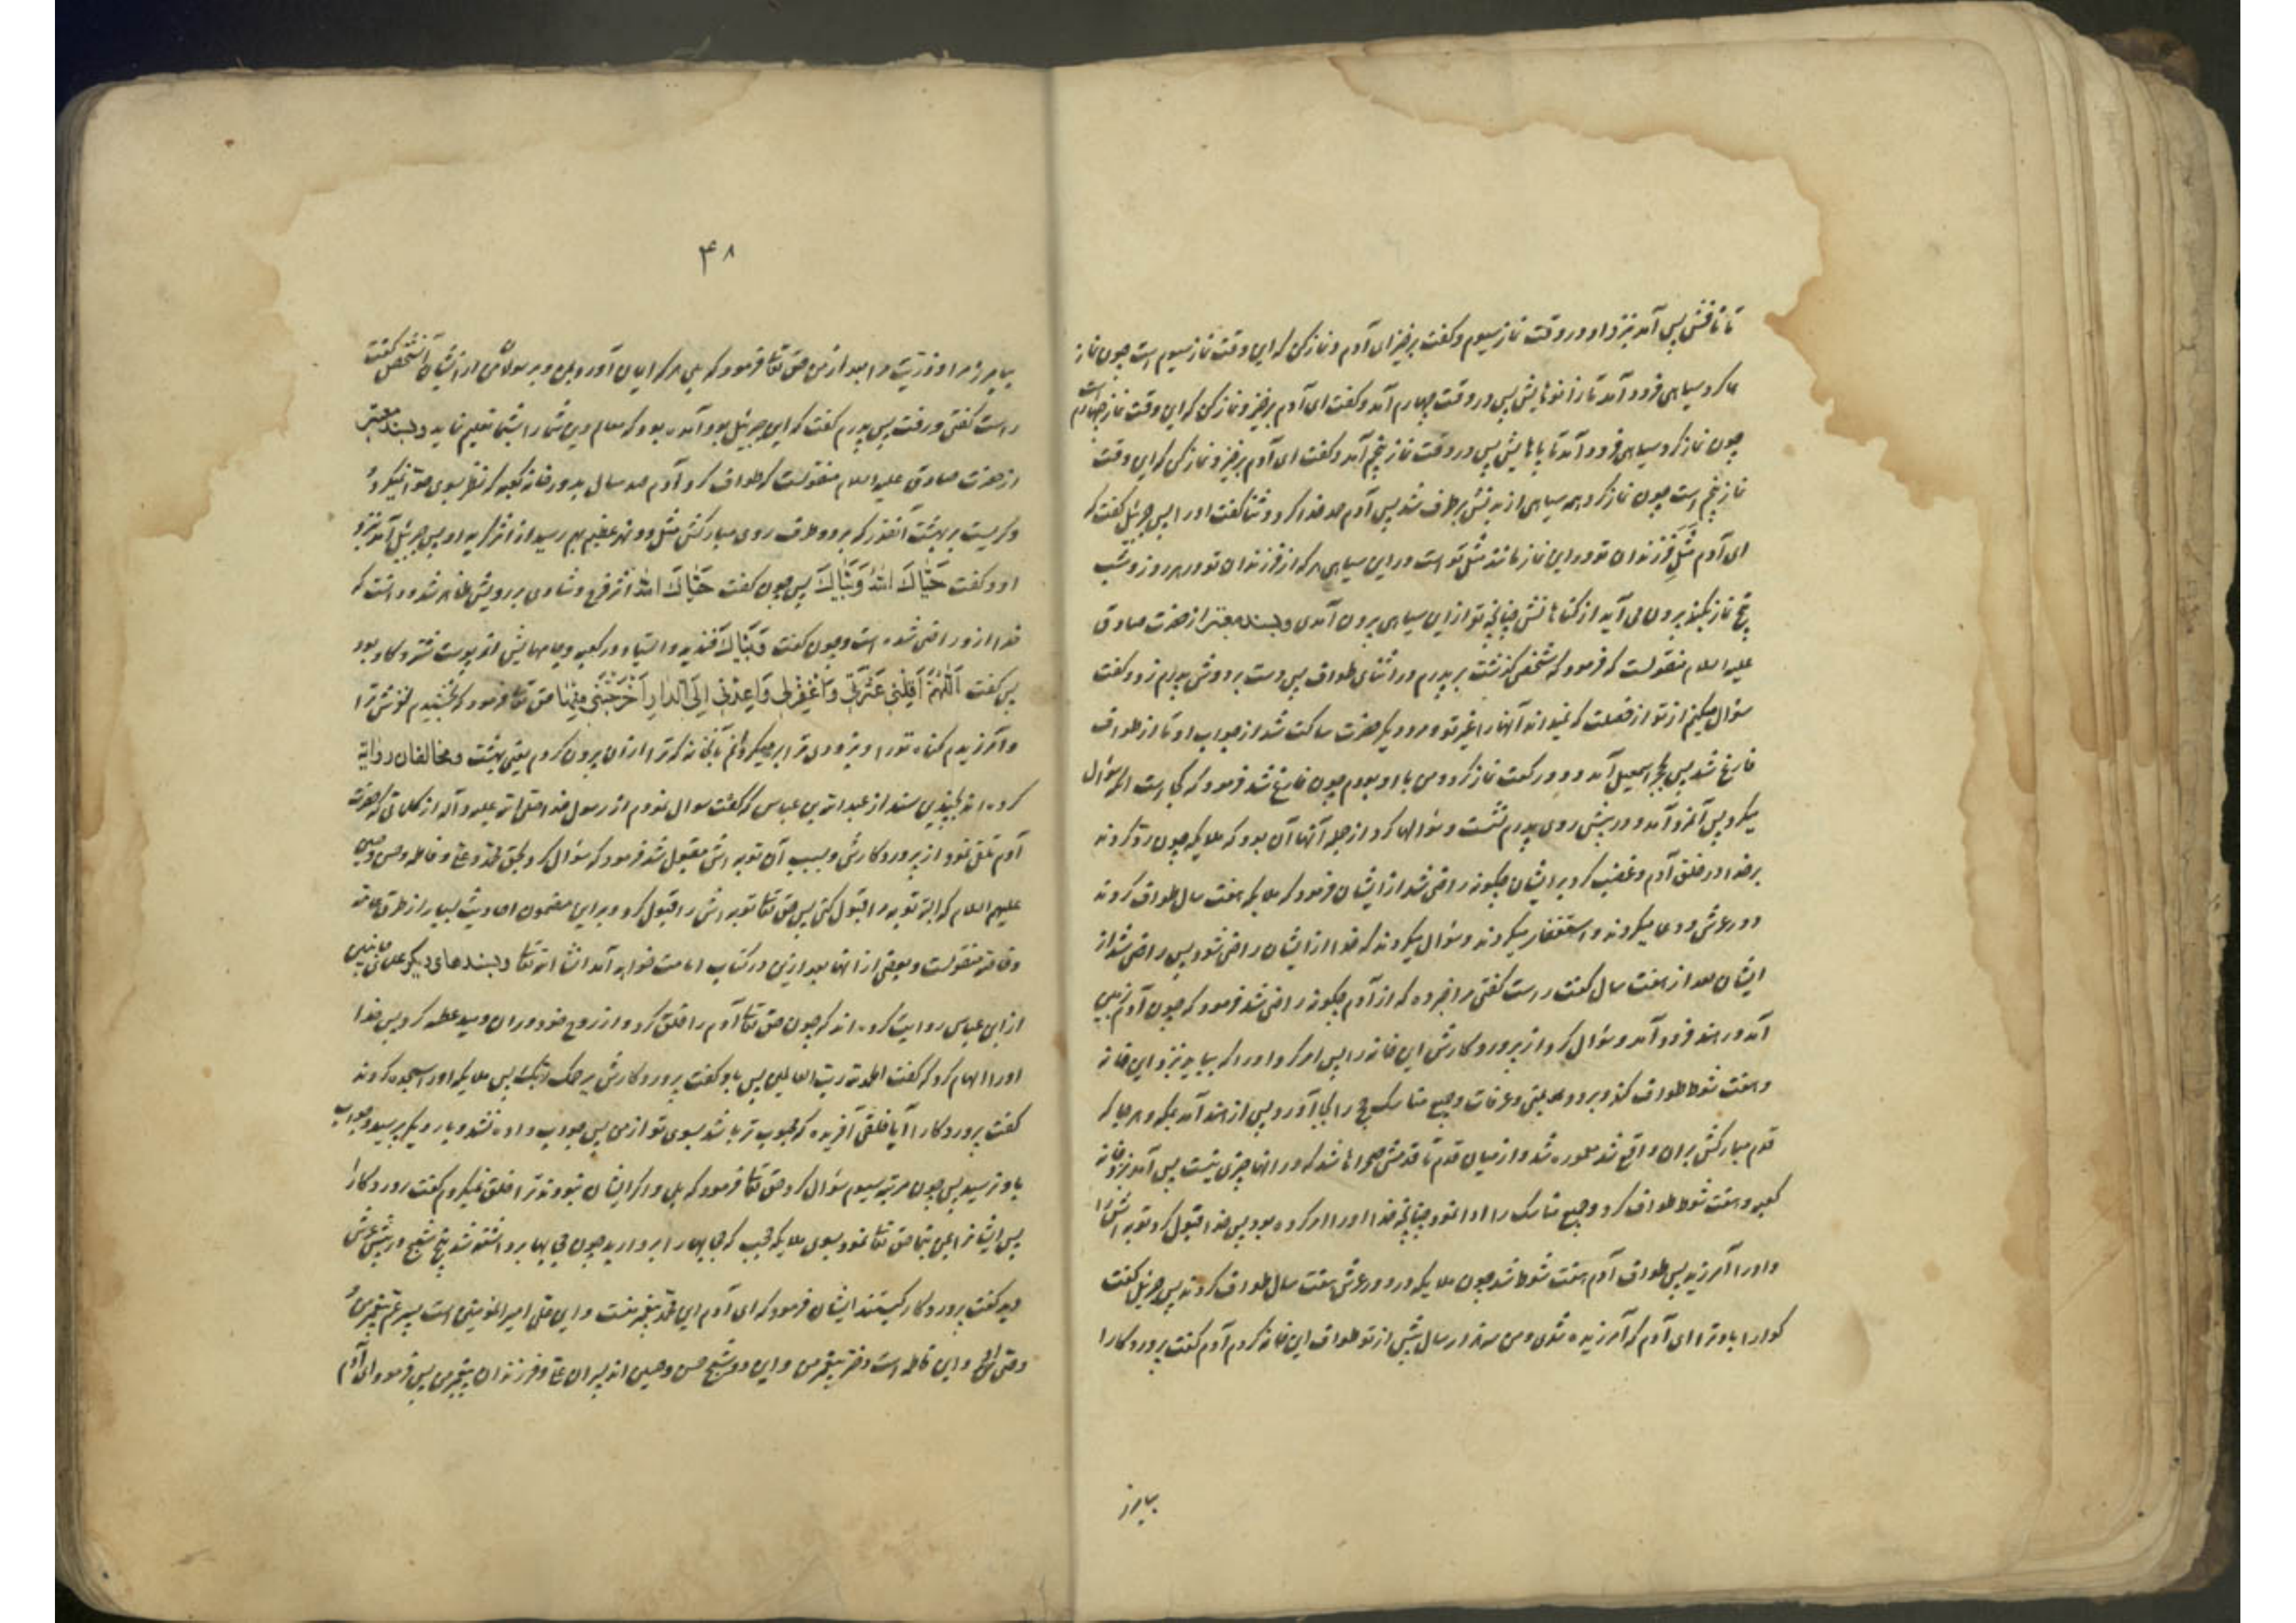 تا نافش پس آمد بنزد او در وقت نماز سیوم و گفت برخیز ای آدم و نماز کن که این وقت نماز سیوم است چون نماز
کرد سیاهی فرود آمد تا زانوهایش پس در وقت چهارم آمد و گفت ای آدم برخیز و نماز کن که این وقت نماز چهارم است
چون نماز کرد سیاهی فرود آمد تا پاهایش پس در وقت نماز پنجم آمد و گفت ای آدم برخیز و نماز کن که این وقت
نماز پنجم است چون نماز کرد همه سیاهی از بدنش برطرف شد پس آدم حمد خدا کرد و ثنا گفت او را پس جبرئیل گفت که
ای آدم مثل فرزندان تو در این نماز مانند مثل تو است در این سیاهی هر که از فرزندان تو در هر روز و شب
پنج نماز بکند بیرون می آید از گناهانش چنانچه تو از این سیاهی بیرون آمدی و بسند معتبر از حضرت صادق
علیه السلام منقولست که فرمود که شخصی گذشت بر پدرم در اثنای طواف پس دست بر دوش پدرم زد و گفت
سؤال میکنم از تو از خصلت که نمیداند آنها را غیر تو و مرد دیگر حضرت ساکت شد از جواب او تا از طواف
فارغ شد پس بحجر اسمعیل آمد و دو رکعت نماز کرد و من با او بودم چون فارغ شد فرمود که کجا است آنکه سؤال
میکرد پس آنمرد آمد و در پیش روی پدرم نشست و سؤالها کرد از جمله آنها آن بود که ملایکه چون رد کردند
بر خدا در خلق آدم و غضب کرد بر ایشان چگونه راضی شد از ایشان فرمود که ملایکه هفت سال طواف کردند
دور عرش و دعا میکردند و استغفار میکردند و سؤال میکردند که خدا از ایشان راضی شود پس راضی شد از
ایشان بعد از هفت سال گفت راست گفتی مرا خبر ده که از آدم چگونه راضی شد فرمود که چون آدم بزمین
آمد در هند فرود آمد و سؤال کرد از پروردگارش این خانه را پس امر کرد او را که بیاید نزد این خانه
و هفت شوط طواف کند و برود بمنی و عرفات و جمیع مناسک حج را بجا آورد پس از هند آمد بمکه و هر جا که
قدم مبارکش بر آن واقع شد معموره شد و از میان قدم تا قدمش صحراها شد که در آنها چیزی نیست پس آمد بنزد خانه
کعبه و هفت شوط طواف کرد و جمیع مناسک را ادا نمود چنانچه خدا او را امر کرده بود پس خدا قبول کرد توبه اش را
و او را آمرزید پس طواف آدم هفت شوط شد چون ملایکه در دور عرش هفت سال طواف کردند پس جبرئیل گفت
گوارا باد ترا ای آدم که آمرزیده شدی و من سه هزار سال پیش از تو طواف این خانه کردم آدم گفت پروردگارا
بیامرز
۴۸
بیامرز مرا و ذریت مرا بعد از من حق تعالی فرمود که بلی هر که ایمان آورد بمن و برسولان من از ایشان آنشخص گفت
راست گفتی و رفت پس پدرم گفت که این جبرئیل بود آمده بود که معالم دین شما را بشما تعلیم نماید و بسند معتبر
از حضرت صادق علیه السلام منقولست که طواف کرد آدم صد سال بدور خانه کعبه که نظر بسوی حوا نمیکرد
و گریست بر بهشت آنقدر که بر دو طرف روی مبارکش مثل دو نهر عظیم بهم رسید از اثر گریه او پس جبرئیل آمد بنزد
او و گفت حَیّاكَ اللهُ وَبَیّاكَ پس چون گفت حَیّاكَ اللهُ اثر فرح و شادی بر رویش ظاهر شد و دانست که
خدا از او راضی شده است و چون گفت وَبَیّاكَ خندید و ایستاد در کعبه و جامهایش از پوست شتر و گاو بود
پس گفت اَللّٰهُمَّ اَقِلْنی عَثْرَتی وَاغْفِرْلی وَاَعِدْنی اِلَی الدّارِ اَخْرَجْتَنی مِنْها حق تعالی فرمود که بخشیدم لغزش ترا
و آمرزیدم گناه تو را و بزودی ترا بر میگردانم بآنخانه که ترا از آن بیرون کردم یعنی بهشت و مخالفان روایة
کرده اند بچندین سند از عبد الله بن عباس که گفت سوال نمودم از رسول خدا صلی الله علیه و آله از کلماتی که حضرت
آدم تلقی نمود از پروردگارش و بسبب آن توبه اش مقبول شد فرمود که سؤال کرد بحق محمد و علی و فاطمه و حسن و حسین
علیهم السلام که البته توبه مرا قبول کنی پس حق تعالی توبه اش را قبول کرد و بر این مضمون احادیث بسیار از طرق عامه
و خاصه منقولست و بعضی از انها بعد ازین در کتاب امامت خواهد آمد انشاء الله تعالی و بسندهای دیگر
از ابن عباس روایت کرده اند که چون حق تعالی آدم را خلق کرد و از روح خود در آن دمید عطسه کرد پس خدا
او را الهام کرد که گفت الحمد لله رب العالمین پس باو گفت پروردگارش یرحمك ربك پس ملایکه او را سجده کردند
گفت پروردگارا آیا خلقی آفریده که محبوب تر باشد بسوی تو از من پس جواب داده نشد و بار دیگر پرسید و جواب
باو نرسید پس چون مرتبه سیوم سؤال کرد حق تعالی فرمود که بلی و اگر ایشان نبودند ترا خلق نمیکردم گفت پروردگارا
پس ایشانرا بمن بنما حق تعالی نمود بسوی ملایکه حجب که حجابها را بردارید چون حجابها برداشته شد پنج شبح در پیش عرش
دید گفت پروردگارا کیستند ایشان فرمود که ای آدم این محمد پیغمبر منست و این علی امیر المؤمنین است پسر عم پیغمبر من
و وصی او و این فاطمه است دختر پیغمبر من و این دو شبح حسن و حسین اند پسران علی و فرزندان پیغمبر من پس فرمود ای آدم